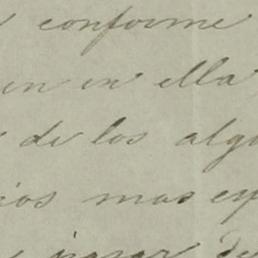 conforme
en en ella
de los algu
ios mas ex